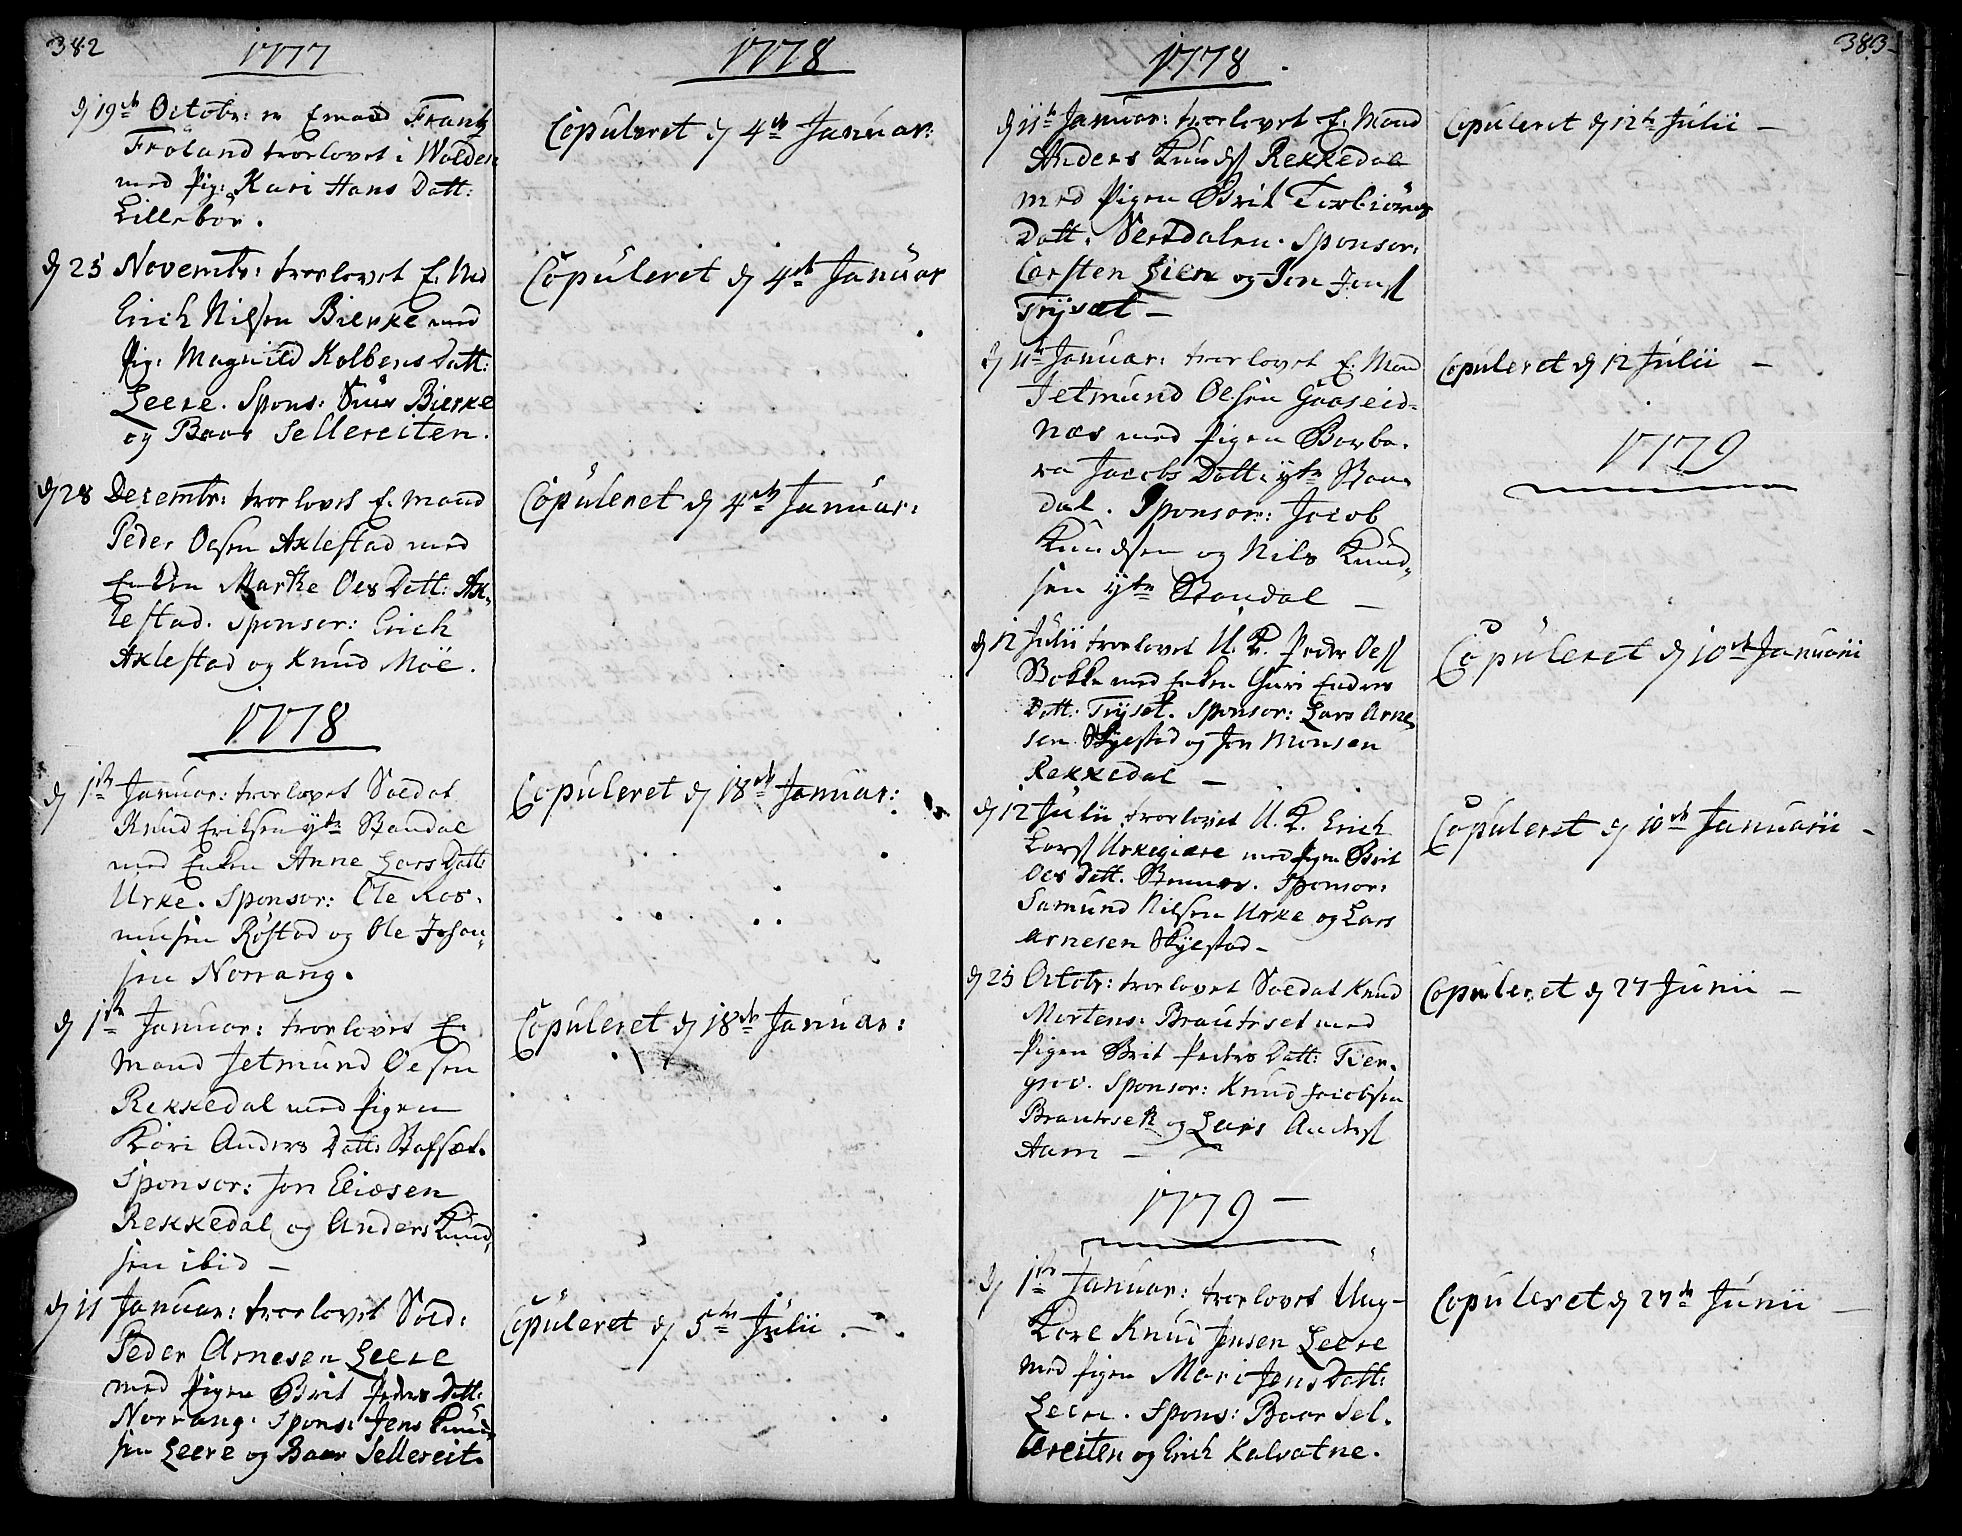 382
1777
d 19de Octobr: er Emand Frantz
Fröland trorlovet i Wolden
med Pig: Kari Hans Datt:
Lillebøe.
d 25 Novembr: trorlovet E. Md
Erich Nilsen Bierke med
Pig: Magnild Kolbens Datt:
Leere. Spons: Siur Bierke
og Baar Sellereiten.
d 28 Decembr: trorlovet E. Mand
Peder Oesen Axlestad med
Enken Marthe Oes Datt: Ax-
lestad. Sponsor: Erich
Axlestad og Knud Möe.
1778
d 1ste Januar: trorlovet Soldat
Knud Eriksen ytr Standal
med Enken Anne Lars Datt:
Urke. Sponsor: Ole Ras-
musen Röstad og Ole Johan-
sen Norrang.
d 1ste Januar: trorlovet E.
Mand Jetmund Oesen
Rekkedal med Pigen
Kari Anders Datt:
Sponsor: Jon Eliasen
Rekkedal og Anders Knud-
sen ibid –
d 11 Januar: trorlovet Sold:
Peder Arnesen Leere
med Pigen Brit Peders Datt:
Norrang. Spons: Jens Knud-
sen Leere og Baar Sellereit.
1778
Copuleret d 4de Januar:
Copuleret d 4de Januar
Copuleret d 4de Januar:
Copuleret d 18de Januar:
Copuleret d 18de Januar:
Copuleret d 5te Julii. –
1778.
d 11te Januar: trorlovet E. Mand
Anders Knuds Rekkedal
med Pigen Brit Torbiörns
Datt: Sponsor:
Carsten Lien og Jon Jens
Trysæt –
d 11te Januar: trorlovet E. Mand
Jetmund Olsen Gaaseid-
næs med Pigen Barba-
ra Jacobs Datt: ytr Stan-
dal. Sponsor: Jacob
Knudsen og Nils Knud-
sen ytr Standal –
d 12 Julii trorlovet U. K. Peder Oes
Bakke med Enken Guri Enders
Datt: Tryset. Sponsor: Lars Arne-
sen Skyestad og Jon Monsen
Rekkedal –
d 12 Julii trorlovet U. K. Erich
Lars Urkegiære med Pigen Brit
Oes Datt. Sponsor:
Samund Nilsen Urke og Lars
Arnesen Skyestad –
d 25 Octobr: trorlovet Soldat Knud
Mortens: Brauteset med
Pigen Brit Peders Datt:
Sponsor: Knud Jacobsen
Brauteset og Lars Anders
Aam –
1779 –
d 1ste Januar: trorlovet Ung-
Karl Knud Jensen Leere
med Pigen Mari Jens Datt:
Leere. Spons: Baar Sel-
lereiten og Erich Kalvatne.
383
Copuleret d 12te Julii –
Copuleret d 12 Julii –
1779
Copuleret d 10de Januarii
Copuleret d 10de Januarii –
Copuleret d 27 Junii –
Copuleret d 27de Junii –